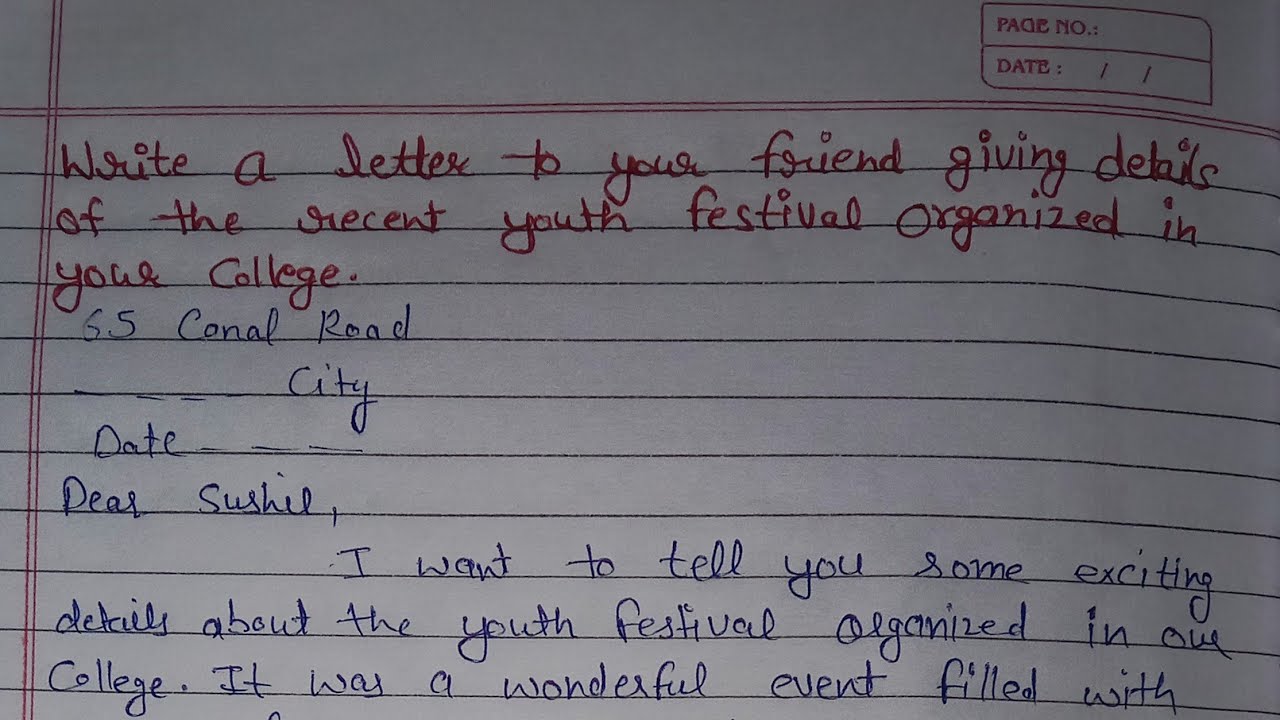 PAGE NO.:
DATE : / /
Write a letter to your friend giving details
of the recent youth festival organized in
your College.
65 Canal Road
_ _ _ _ City
Date _ _ _
Dear Sushil,
I want to tell you some exciting
details about the youth festival organized in our
College. It was a wonderful event filled with